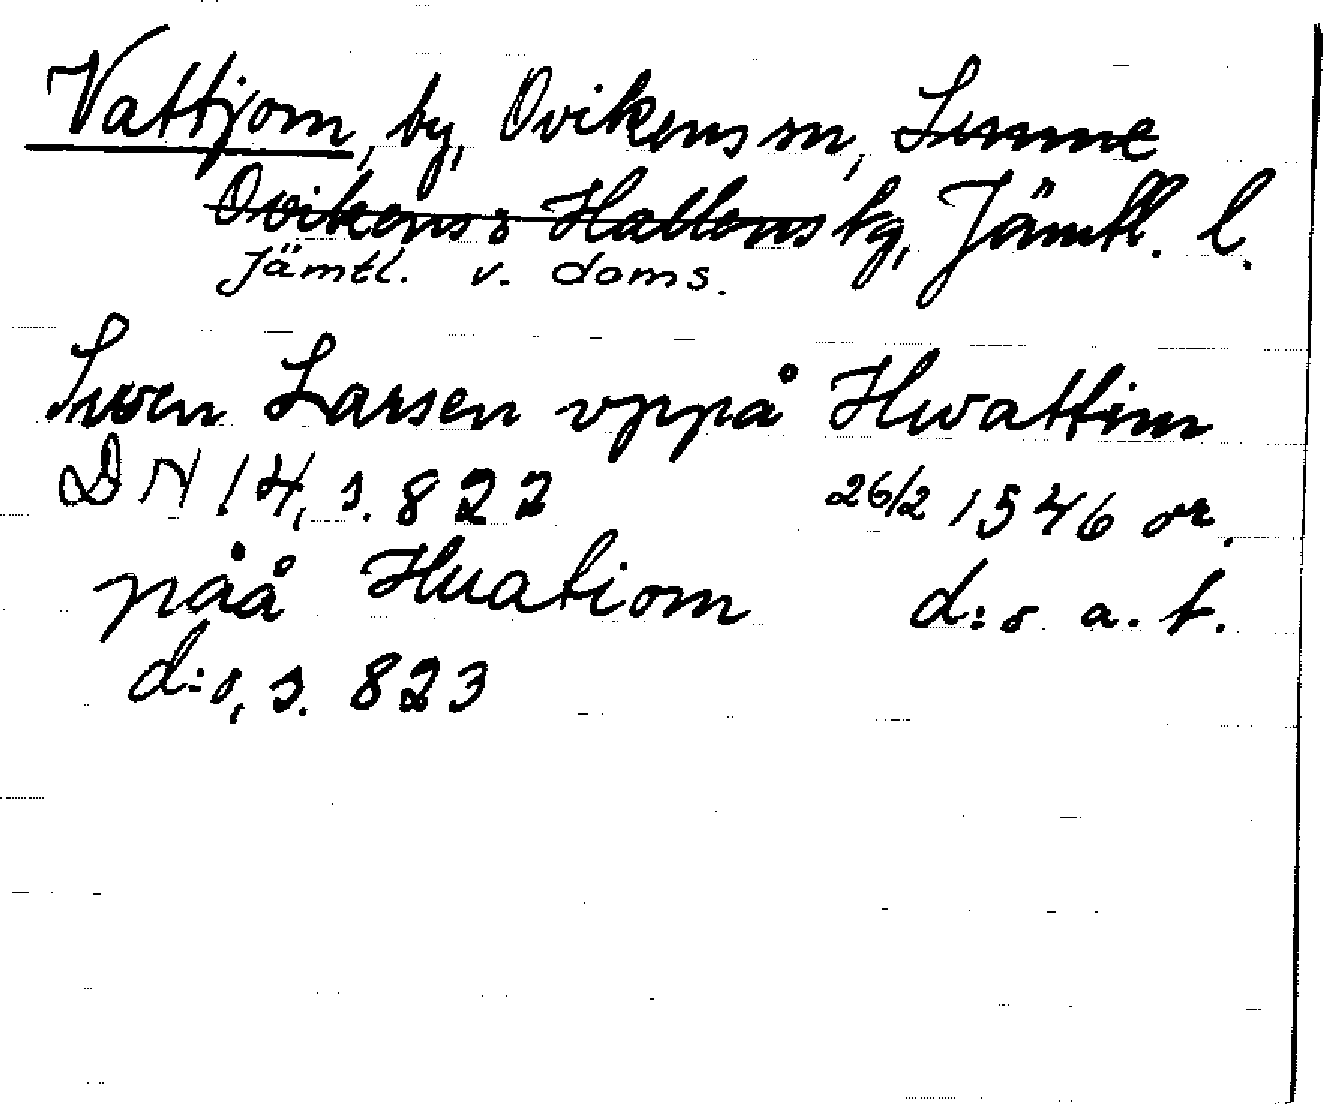 Vattjom, by, Ovikens sn, Sunne
Ovikens & Hallens tg, Jämtl. l.
Jämtl. v. doms.
Swen Larsen vppå Hwattim
DN 14, s. 822 26/2 1546 or.
påå Huatiom d:o a. f.
d:o, s. 823